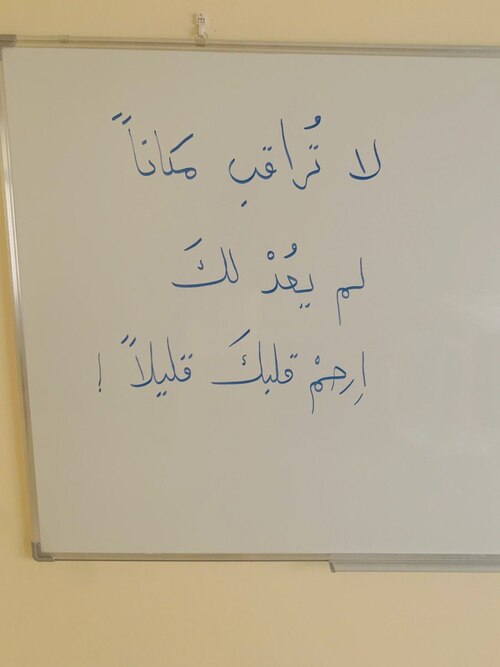 لا تُراقبِ مكاناً
لم يعُدْ لكَ
اِرحمْ قلبكَ قليلاً !